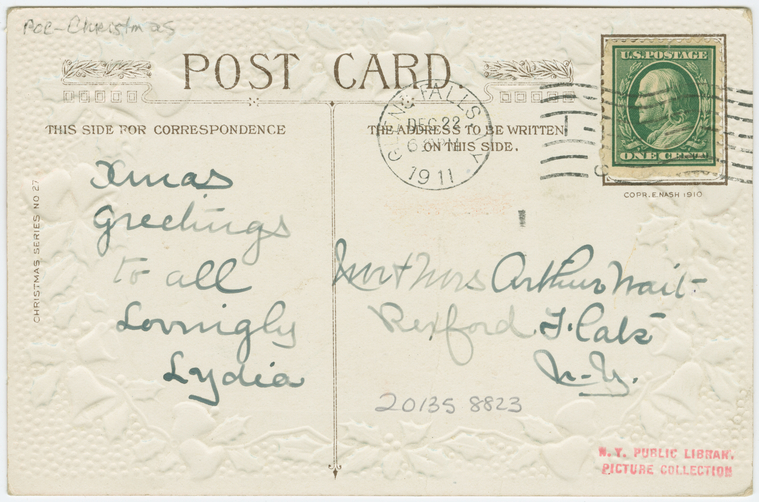 POC-Christmas
POST CARD
THIS SIDE FOR CORRESPONDENCE
THE ADDRESS TO BE WRITTEN
ON THIS SIDE.
GLENS FALLS, N.Y.
DEC 22
1911
U.S. POSTAGE
ONE CENT
COPR. E. NASH 1910
CHRISTMAS SERIES NO 27
Xmas
Greetings
to all
Lovingly
Lydia
Mr + Mrs Arthur Wait
Rexford Flats
N.Y.
20135 8823
N. Y. PUBLIC LIBRARY
PICTURE COLLECTION